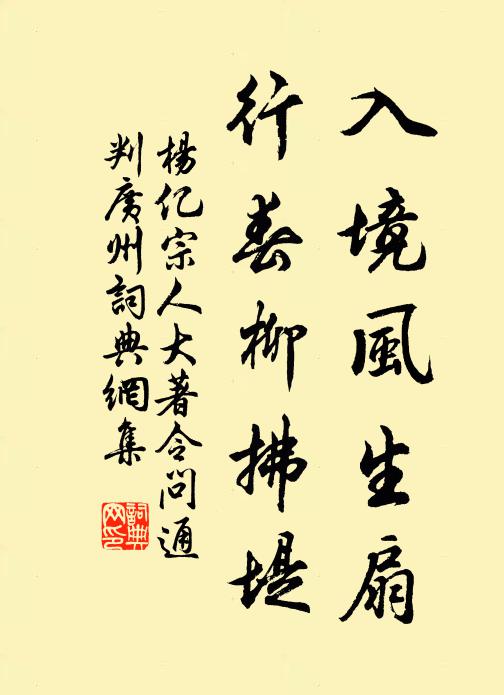 入境風生扇
行春柳拂堤
楊亿宗人大著令問通
判廣州詞典網集
詞典
网印